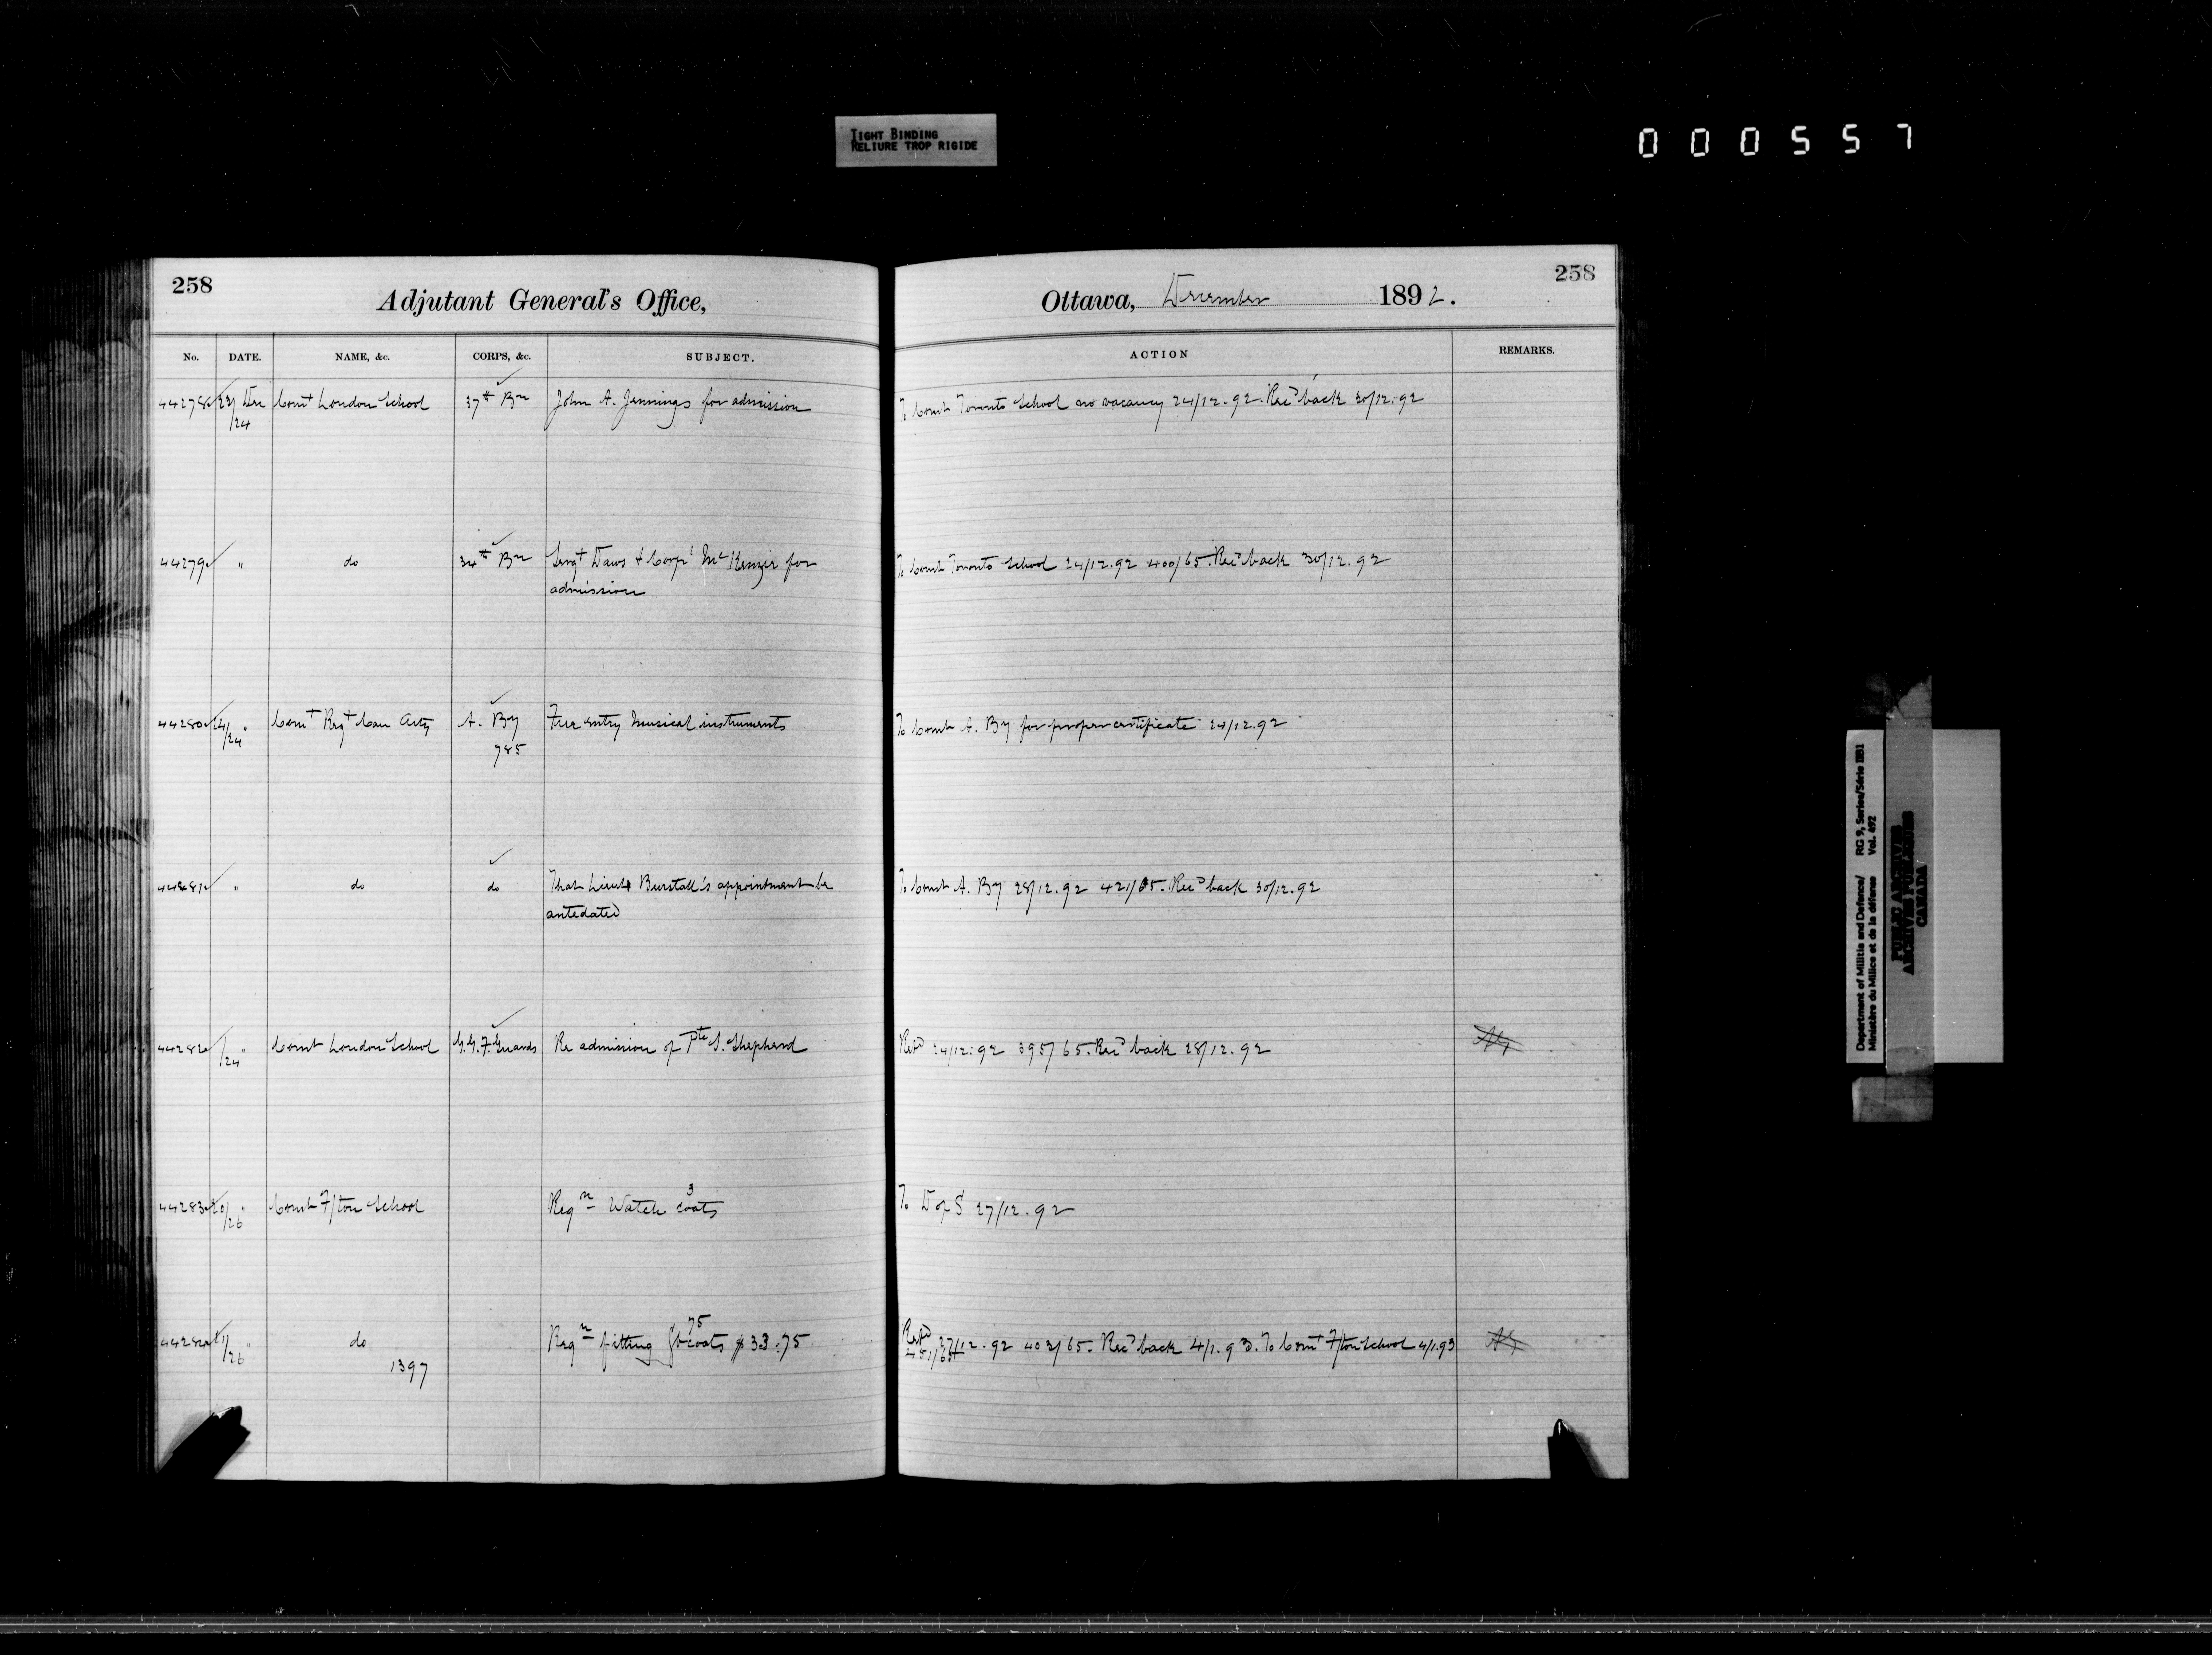 TIGHT BINDING
RELIURE TROP RIGIDE
000557
258
Adjutant General's Office,
Ottawa, December 1892.
258
No. DATE. NAME, &c. CORPS, &c. SUBJECT. ACTION REMARKS.
44278 23/24 Dec Comt London School 37th Bn John A. Jennings for admission To Comt Toronto School no vacancy 24/12.92. Rec'd back 30/12.92
44279 " do 34th Bn Sergt Daws & Corpl McKenzie for To Comt Toronto School 24/12.92 400/65. Rec'd back 30/12.92
admission
44280 24/24 " Comt Regt Can Arty A. By Free entry musical instruments To Comt A. By for proper certificate 24/12.92
785
44281 " do do That Lieut Burstall's appointment be To Comt A. By 28/12.92 421/65. Rec'd back 30/12.92
antedated
44282 /24 " Comt London School G.G.F. Guards Re admission of Pte S. Shepherd Repd 24/12.92 395/65. Rec'd back 28/12.92
44283 20/26 " Comt F/ton School Reqn Watch coats 3 To D of S 27/12.92
44284 21/26 " do Reqn fitting Gt coats 75 $33.75 Repd 27/12.92 403/65. Rec'd back 4/1.93. To Comt F/ton School 4/1.93
451/65
1397
Department of Militia and Defence/ RG 9, Series/Série IIB1
Ministère du Milice et de la défense Vol. 492
PUBLIC ARCHIVES
ARCHIVES PUBLIQUES
CANADA